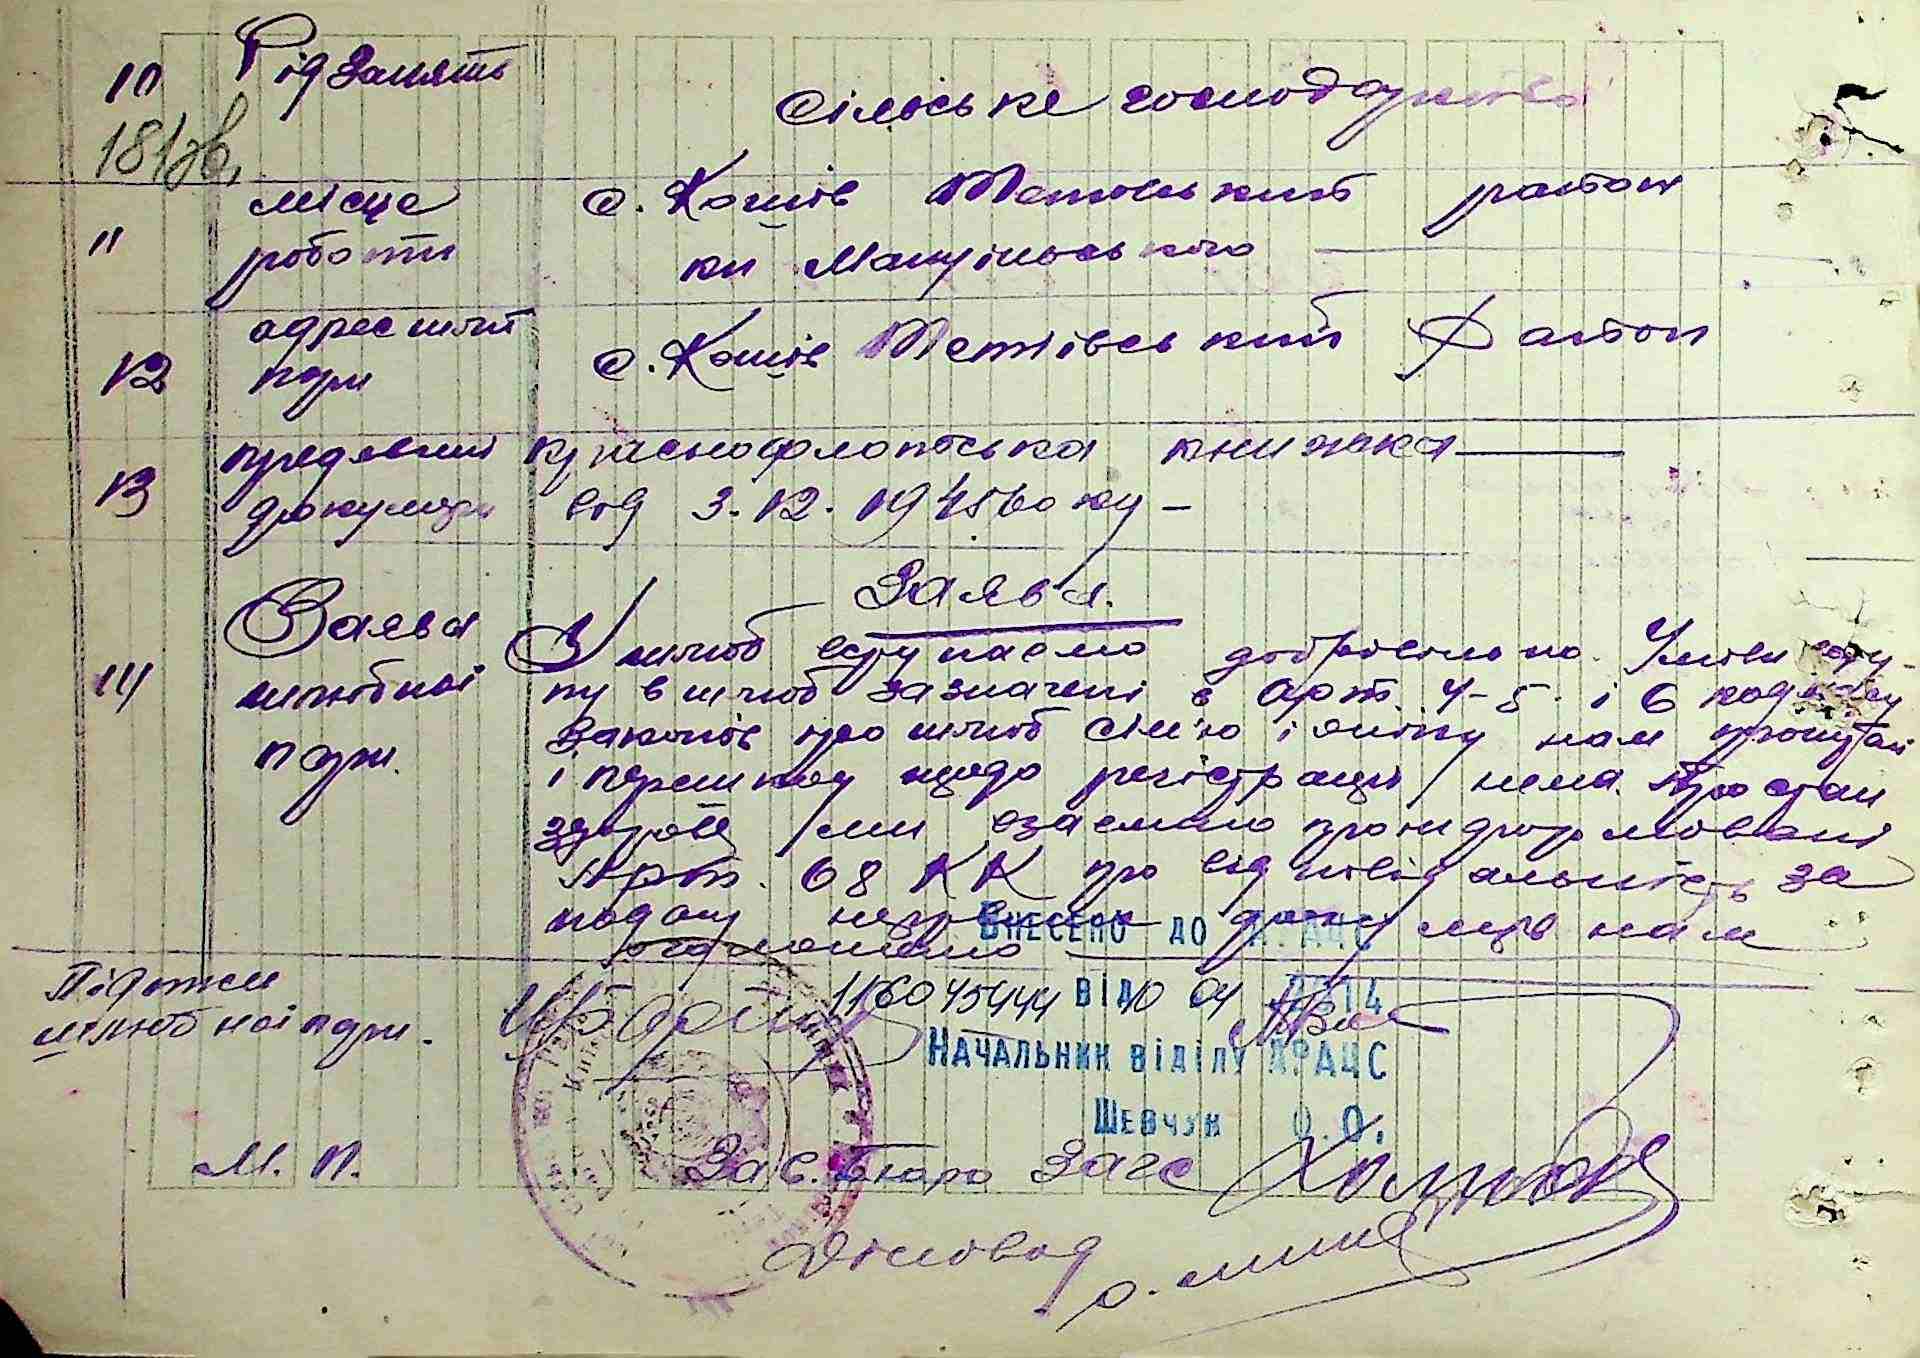 10 Рід занять
сільське господарство
181зв.
11 місце роботи
с. Кошів Тетівський район
ки Мануільського
12 адрес шлюб пари
с. Кошів Тетіївський Район
13 предявлені документи
краснофлотська книжка
від 3.12.1945 року -
14 Заява шлюбної пари.
Заява.
В шлюб вступаємо добровільно. Умови всту-
пу в шлюб зазначені в Арт. 4-5. і 6 кодексу
законів про шлюб сім'ю і опіку нам прочитані
і перешкод щодо регістрації нема. Про стан
здоровя ми взаємно проінформовані
Арт. 68 КК про відповідальність за
подачу документів нам
оголошено
ВНЕСЕНО ДО ДРАЦС
Підписи
шлюбної пари.
ВІД 10 04 2014
НАЧАЛЬНИК ВІДІЛУ ДРАЦС
ШЕВЧУК О.О.
М. П.
Зав. Бюро Загс
Діловод